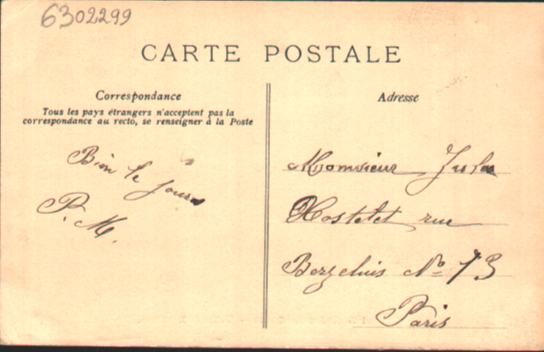 6302299
CARTE POSTALE
Correspondance
Tous les pays étrangers n'acceptent pas la
correspondance au recto, se renseigner à la Poste
Bien le
P. M.
Adresse
Monsieur Jules
Hostelet rue
Berzelius Nº 13
Paris